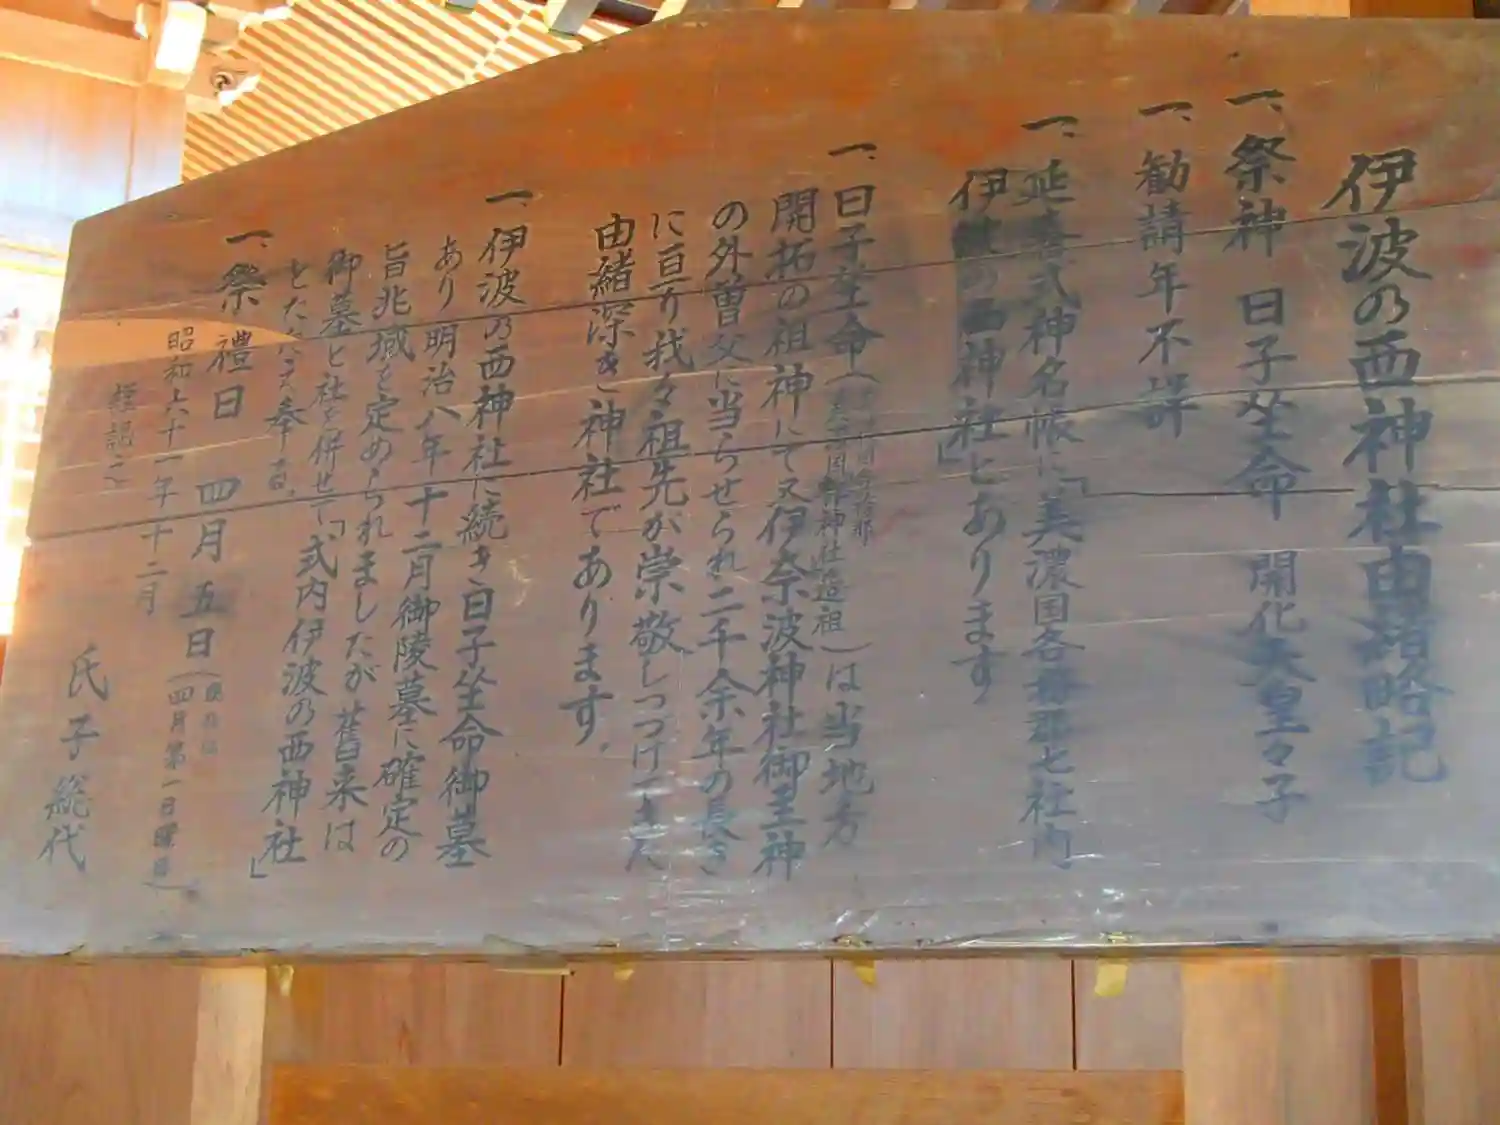 伊波の西神社由緒略記
一、祭神 日子坐命 開化天皇々子
一、勧請年不詳
一、延喜式神名帳に「美濃国各務郡七社内
伊波の西神社」とあります
一、日子坐命(
国造祖)は当地方
開拓の祖神にて又伊奈波神社御主神
の外曽父に当らせられ二千余年の長き
に亘り我々祖先が崇敬しつづけてきた
由緒深き神社であります。
一、伊波乃西神社に続き日子坐命御墓
あり明治八年十二月御陵墓に確定の
旨兆域を定められましたが舊来は
御墓と社を併せて「式内伊波の西神社」
とたたえ奉る。
一、祭禮日 四月五日(
四月第一日曜日)
昭和六十一年十二月
謹認之
氏子総代